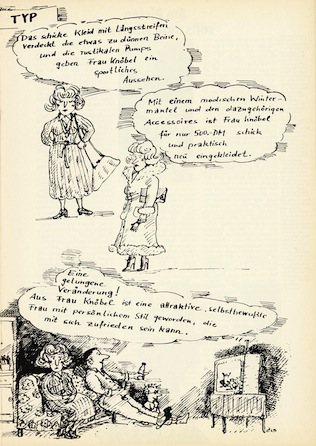 TYP
Das schicke Kleid mit Längsstreifen
verdeckt die etwas zu dünnen Beine,
und die rustikalen Pumps
geben Frau Knöbel ein
sportliches
Aussehen.
Mit einem modischen Winter-
mantel und den dazugehörigen
Accessoires ist Frau Knöbel
für nur 500,-DM schick
und praktisch
neu eingekleidet.
Eine
gelungene
Veränderung!
Aus Frau Knöbel ist eine attraktive, selbstbewußte
Frau mit persönlichem Stil geworden, die
mit sich zufrieden sein kann.